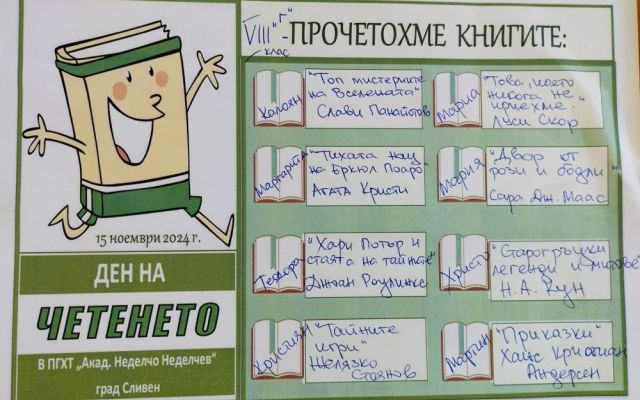 VIII "г"
клас
-ПРОЧЕТОХМЕ КНИГИТЕ:
Калоян
"Топ мистериите
на Вселената"
Слави Панайотов
Мария
"Това, което
никога не
Луси Скор
Маргарита
на Еркюл Поаро"
Агата Кристи
Мария
"Двор от
рози и бодли"
Сара Дж. Маас
Теодора
"Хари Потър и
стаята на тайните"
Джоан Роулинг
Христо
"Старогръцки
легенди и митове"
Н. А. Кун
Кристиян
"Тайните
игри"
Желязко
Стоянов
Мартин
"Приказки"
Ханс Кристиан
Андерсен
15 ноември 2024 г.
ДЕН НА
ЧЕТЕНЕТО
В ПГХТ „Акад. Неделчо Неделчев“
град Сливен